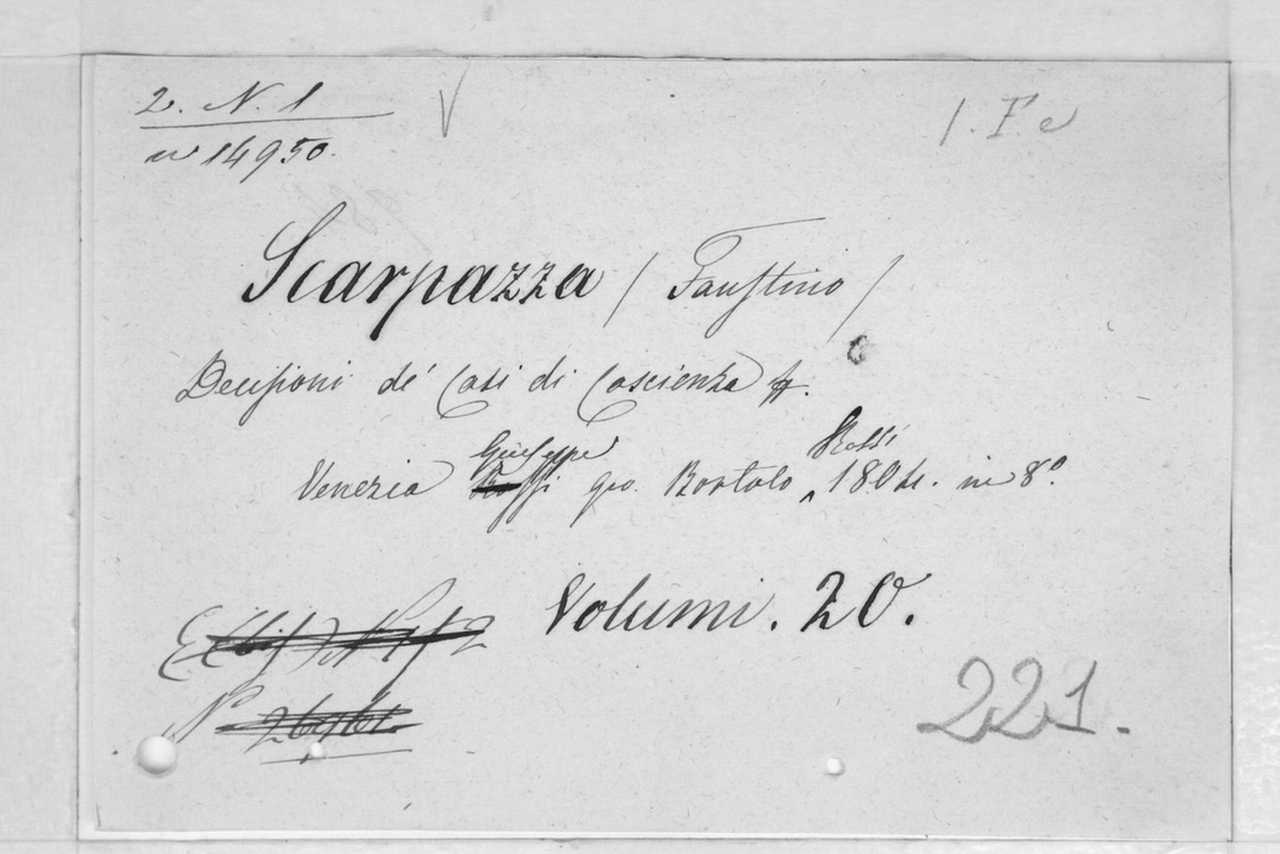 2. N. 1
n 14950.
1. Fe
Scarpazza / Faustino /
Decisioni de' Casi di Coscienza
Giuseppe Rossi
Venezia Rossi qu. Bortolo in 8º
Volumi. 20.
Nº
221.